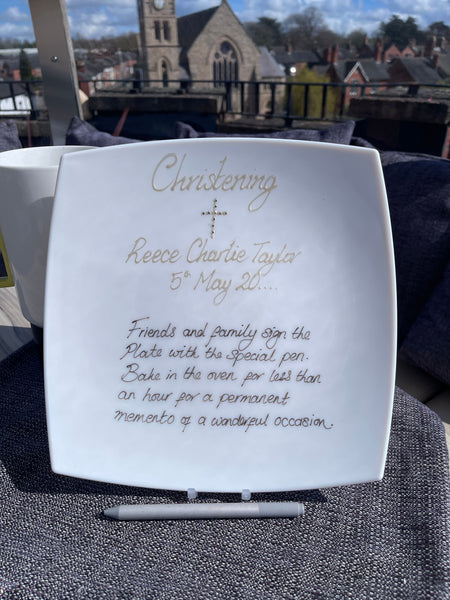 Christening
Reece Charlie Taylor
5th May 20....
Friends and family sign the
Plate with the special pen.
Bake in the oven for less than
an hour for a permanent
memento of a wonderful occasion.